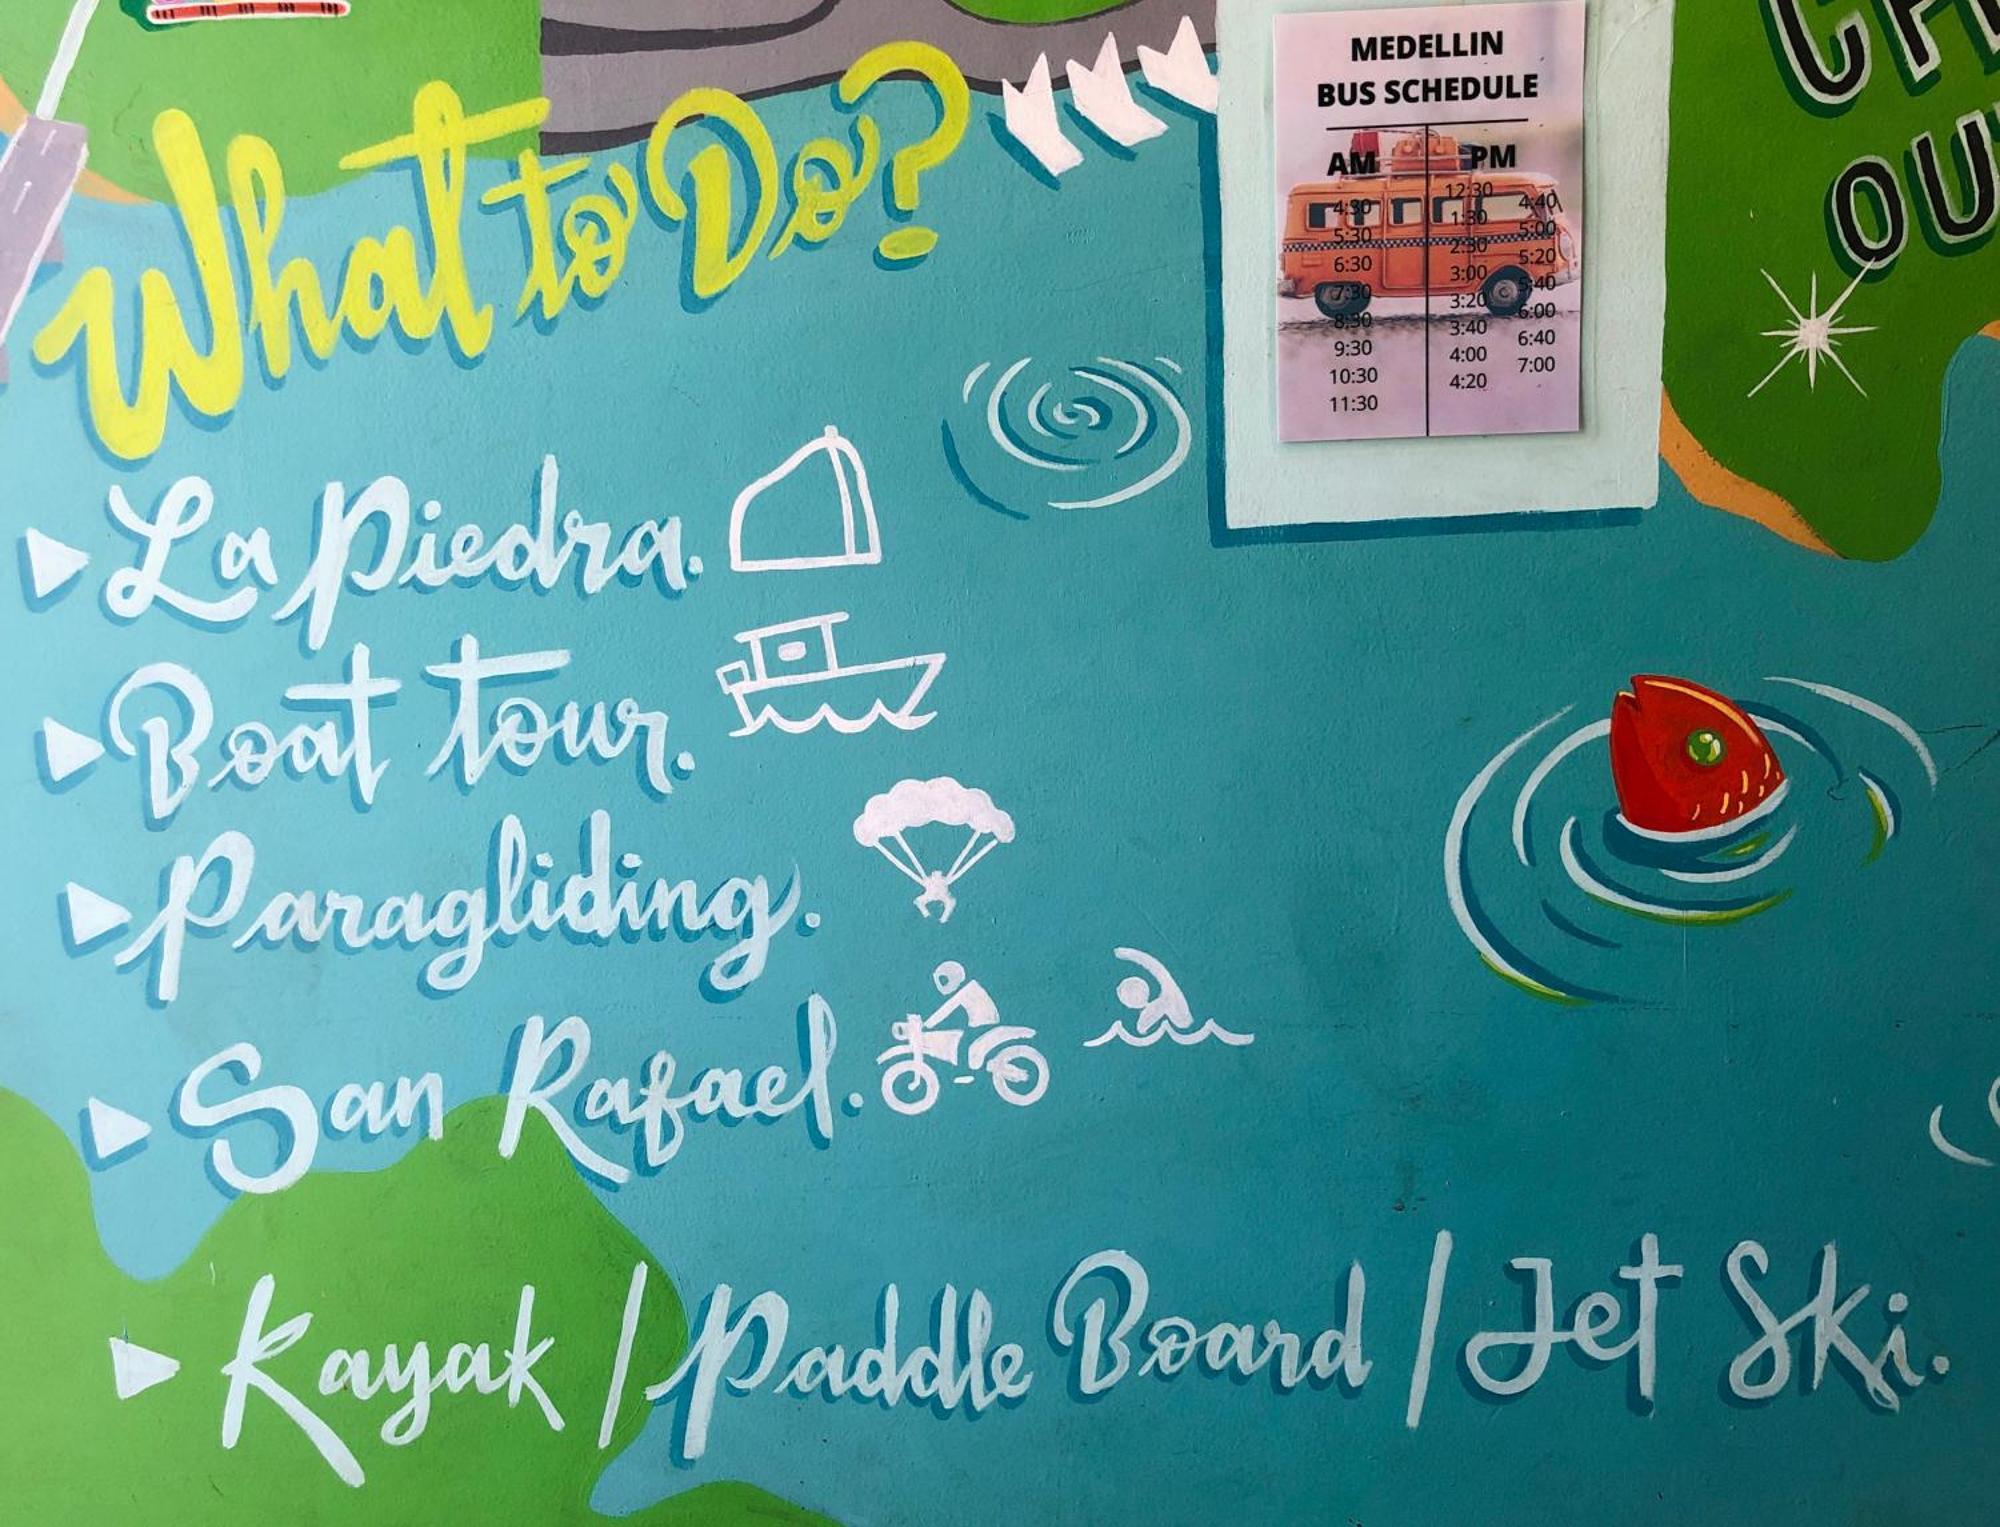 What to Do?
La Piedra.
Boat tour.
Paragliding.
San Rafael.
Kayak / Paddle Board / Jet Ski.
MEDELLIN
BUS SCHEDULE
AM
4:30
5:30
6:30
7:30
8:30
9:30
10:30
11:30
PM
12:30
1:30
2:30
3:00
3:20
3:40
4:00
4:20
4:40
5:00
5:20
5:40
6:00
6:40
7:00
OU